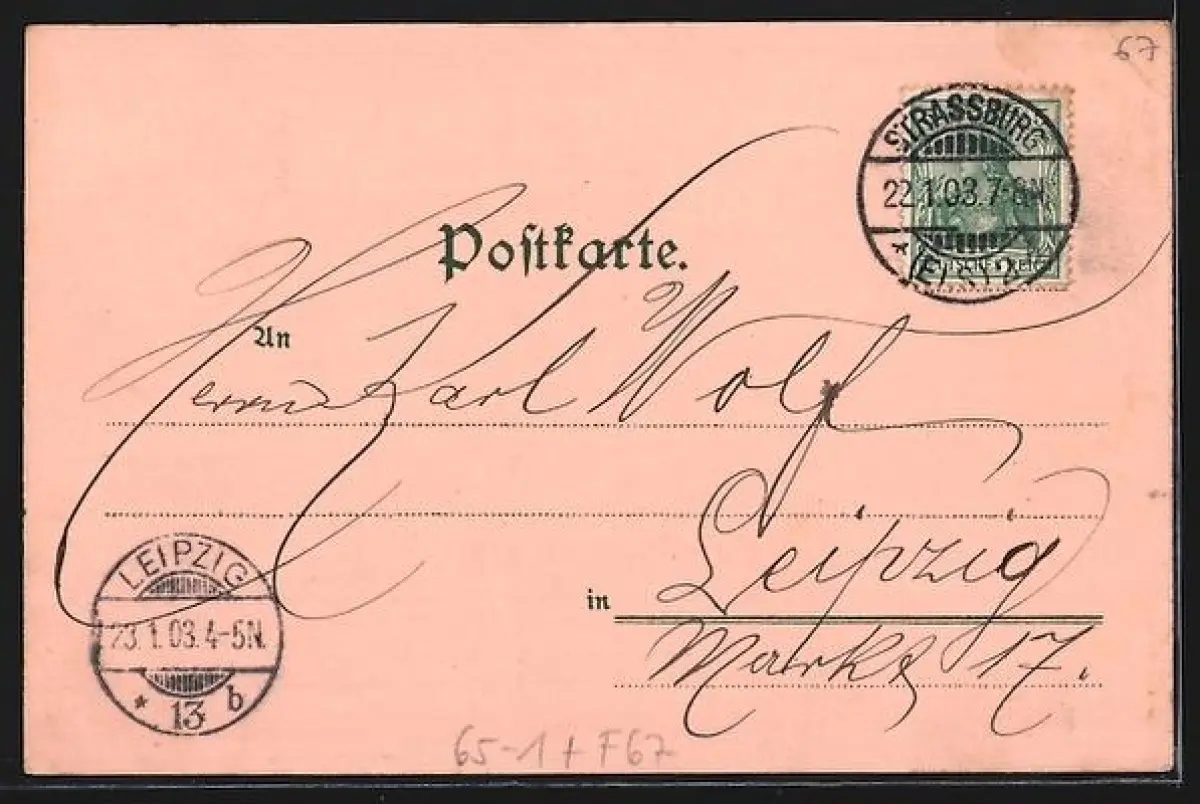 67
STRASSBURG
22.1.03.7-8N.
* (ELS.)
DEUTSCHES REICH
Postkarte.
An
Herrn Karl Wolf
in Leipzig
Markt 17.
LEIPZIG
23.1.03.4-5N.
* 13 b
65-1+F67